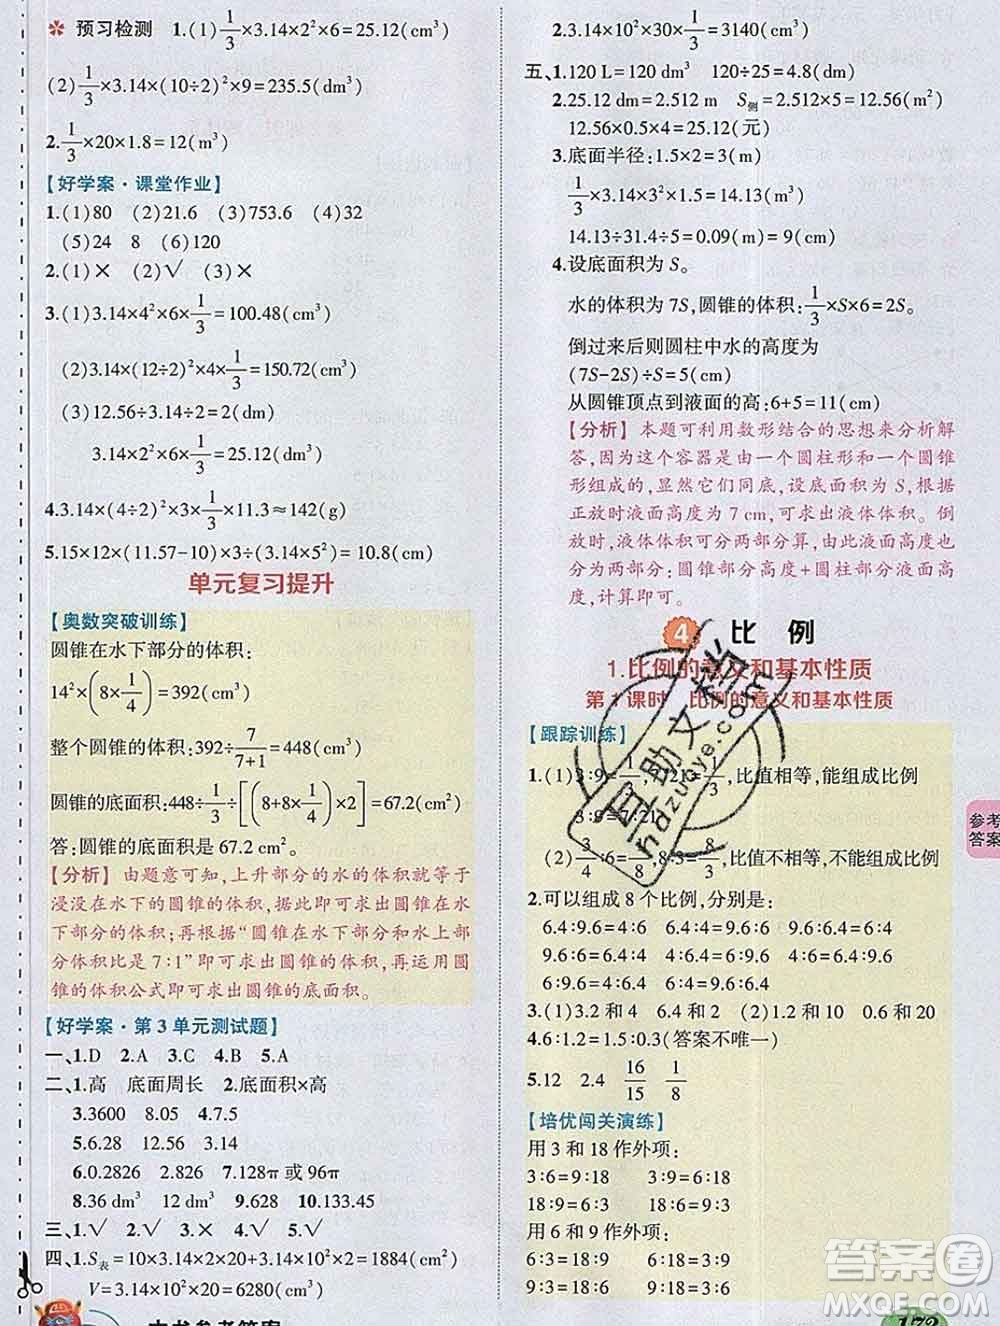 预习检测 1.(1)1/3×3.14×2²×6=25.12(cm³)
(2)1/3×3.14×(10÷2)²×9=235.5(cm³)
2.1/3×20×1.8=12(m³)
【好学案·课堂作业】
1.(1)80 (2)21.6 (3)753.6 (4)32
(5)24 8 (6)120
2.(1)× (2)√ (3)×
3.(1)3.14×4²×6×1/3=100.48(cm³)
(2)3.14×(12÷2)²×4×1/3=150.72(cm³)
(3)12.56÷3.14÷2=2(dm)
3.14×2²×6×1/3=25.12(dm³)
4.3.14×(4÷2)²×3×1/3×11.3≈142(g)
5.15×12×(11.57-10)×3÷(3.14×5²)=10.8(cm)
单元复习提升
【奥数突破训练】
圆锥在水下部分的体积:
14²×(8×1/4)=392(cm³)
整个圆锥的体积:392÷7/(7+1)=448(cm³)
圆锥的底面积:448÷1/3÷[(8+8×1/4)×2]=67.2(cm²)
答:圆锥的底面积是 67.2 cm²。
【分析】 由题意可知,上升部分的水的体积就等于
浸没在水下的圆锥的体积,据此即可求出圆锥在水
下部分的体积;再根据“圆锥在水下部分和水上部
分体积比是 7∶1”即可求出圆锥的体积。再运用圆
锥的体积公式即可求出圆锥的底面积。
【好学案·第 3 单元测试题】
一、1.D 2.A 3.C 4.B 5.A
二、1.高 底面周长 2.底面积×高
3.3600 8.05 4.7.5
5.6.28 12.56 3.14
6.0.2826 7.128π 或 96π
8.36 dm³ 12 dm³ 9.628 10.133.45
三、1.√ 2.√ 3.× 4.√ 5.√
四、1.S表=10×3.14×2×20+3.14×10²×2=1884(cm²)
V=3.14×10²×20=6280(cm³)
2.3.14×10²×30×1/3=3140(cm³)
五、1.120 L=120 dm³ 120÷25=4.8(dm)
2.25.12 dm=2.512 m S侧=2.512×5=12.56(m²)
12.56×0.5×4=25.12(元)
3.底面半径:1.5×2=3(m)
1/3×3.14×3²×1.5=14.13(m³)
14.13÷31.4÷5=0.09(m)=9(cm)
4.设底面积为 S。
水的体积为 7S,圆锥的体积:1/3×S×6=2S。
倒过来后则圆柱中水的高度为
(7S-2S)÷S=5(cm)
从圆锥顶点到液面的高:6+5=11(cm)
【分析】 本题可利用数形结合的思想来分析解
答,因为这个容器是由一个圆柱形和一个圆锥
形组成的,显然它们同底,设底面积为 S,根据
正放时液面高度为 7 cm,可求出液体体积。倒
放时,液体体积可分两部分算,由此可知高度分
两部分:圆锥部分高度+圆柱部分液面高
度,计算即可。
4 比 例
1.比例的意义和基本性质
第 1 课时 比例的意义和基本性质
【跟踪训练】
1.(1)3∶9=1/3,7∶21=1/3,比值相等,能组成比例
3∶9=7∶21
(2)3/4∶6=1/8,8∶3=8/3,比值不相等,不能组成比例
2.可以组成 8 个比例,分别是:
6.4∶9.6=4∶6 6.4∶4=9.6∶6 9.6∶6.4=6∶4
9.6∶6=6.4∶4 4∶6=6.4∶9.6 4∶6.4=6∶9.6
6∶9.6=4∶6.4 6∶4=9.6∶6.4
3.(1)3.2 和 4 6.4 和 2 (2)1.2 和 10 6 和 20
4.6∶1.2=1.5∶0.3(答案不唯一)
5.12 2.4 16/15 1/8
【培优闯关演练】
用 3 和 18 作外项:
3∶6=9∶18 3∶9=6∶18
18∶9=6∶3 18∶6=9∶3
用 6 和 9 作外项:
6∶3=18∶9 6∶18=3∶9
9∶3=18∶6 9∶18=3∶6
参考
答案
本书参考答案
173
早助文档
ndzuoye.com
答案圈
MXQE.COM